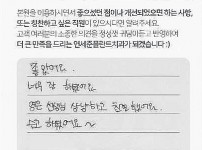 본원을 이용하시면서 좋으셨던 점이나 개선되었으면 하는 사항,
또는 칭찬하고 싶은 직원이 있으시다면 알려주세요.
고객 여러분의 소중한 의견을 정성껏 귀담아듣고 반영하여
더 큰 만족을 드리는 연세준플란트치과가 되겠습니다 :)
좋았어요.
너무 잘 하였어요
모든 선생님 상냥하고 친절 했어요.
수고 하셨어요~